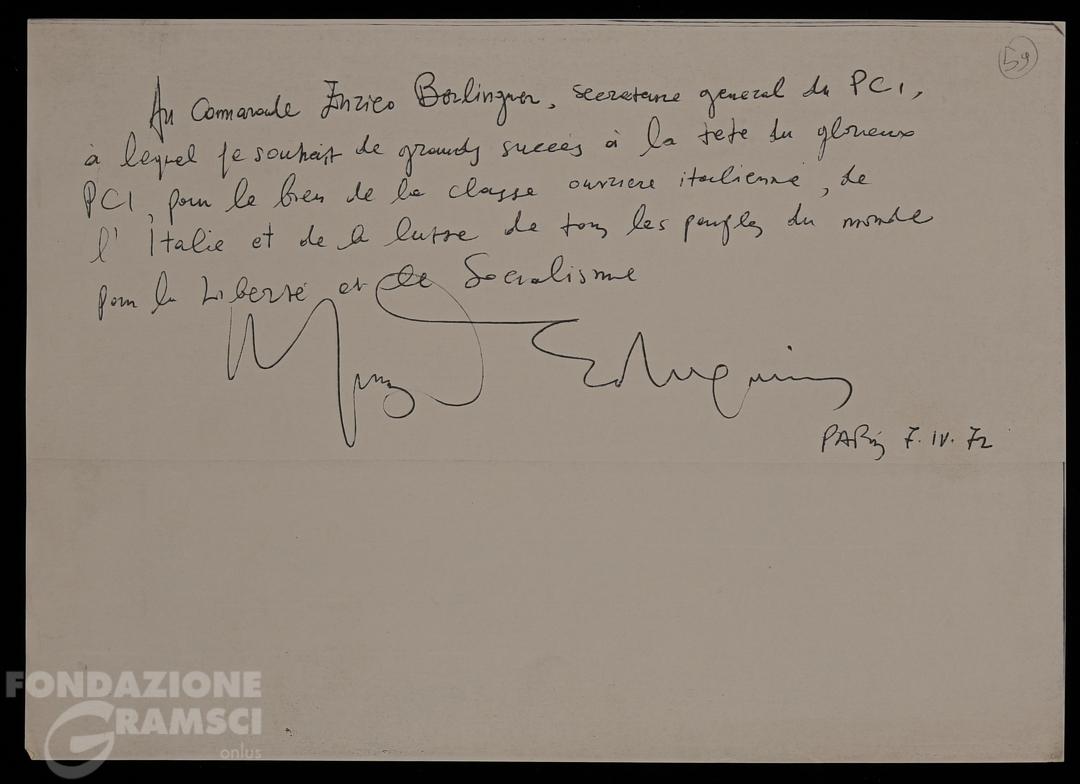 59
Au Camarade Enrico Berlinguer, secretaire general du PCI,
à lequel je souhait de grands succès à la tete du glorieux
PCI, pour le bien de la classe ouvriere italienne, de
l'Italie et de la lutte de tous les peuples du monde
pour la Liberté et le Socialisme
PARis 7. IV. 72
FONDAZIONE
GRAMSCI
onlus